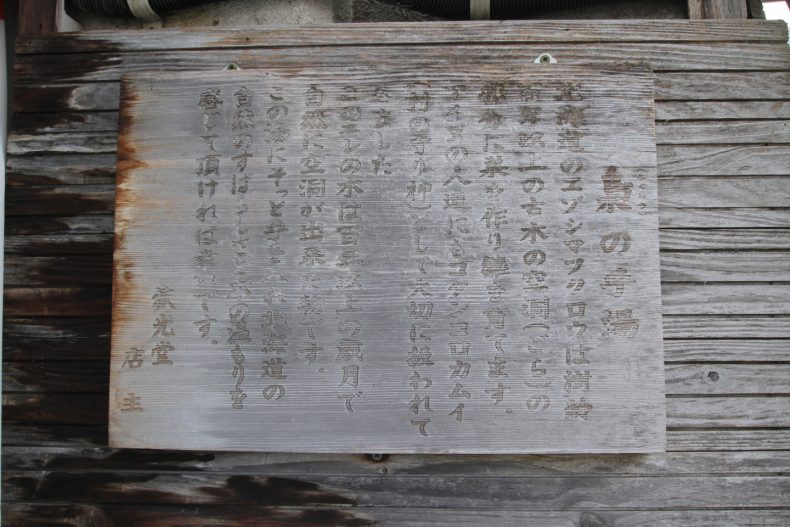 梟の手湯
北海道のエゾシマフクロウは樹齢
百年以上の古木の空洞(どら)の
部分に巣を作り雛を育てます。
アイヌの人達にもコタンコロカムイ
(村の守ル神)として大切に扱われて
きました
このニレの木は百年以上の歳月で
自然に空洞が出来た物です。
この湯にそっと手を入れ北海道の
自然のすばらしさと木の温もりを
感じて頂ければ幸いです。
光堂
店主